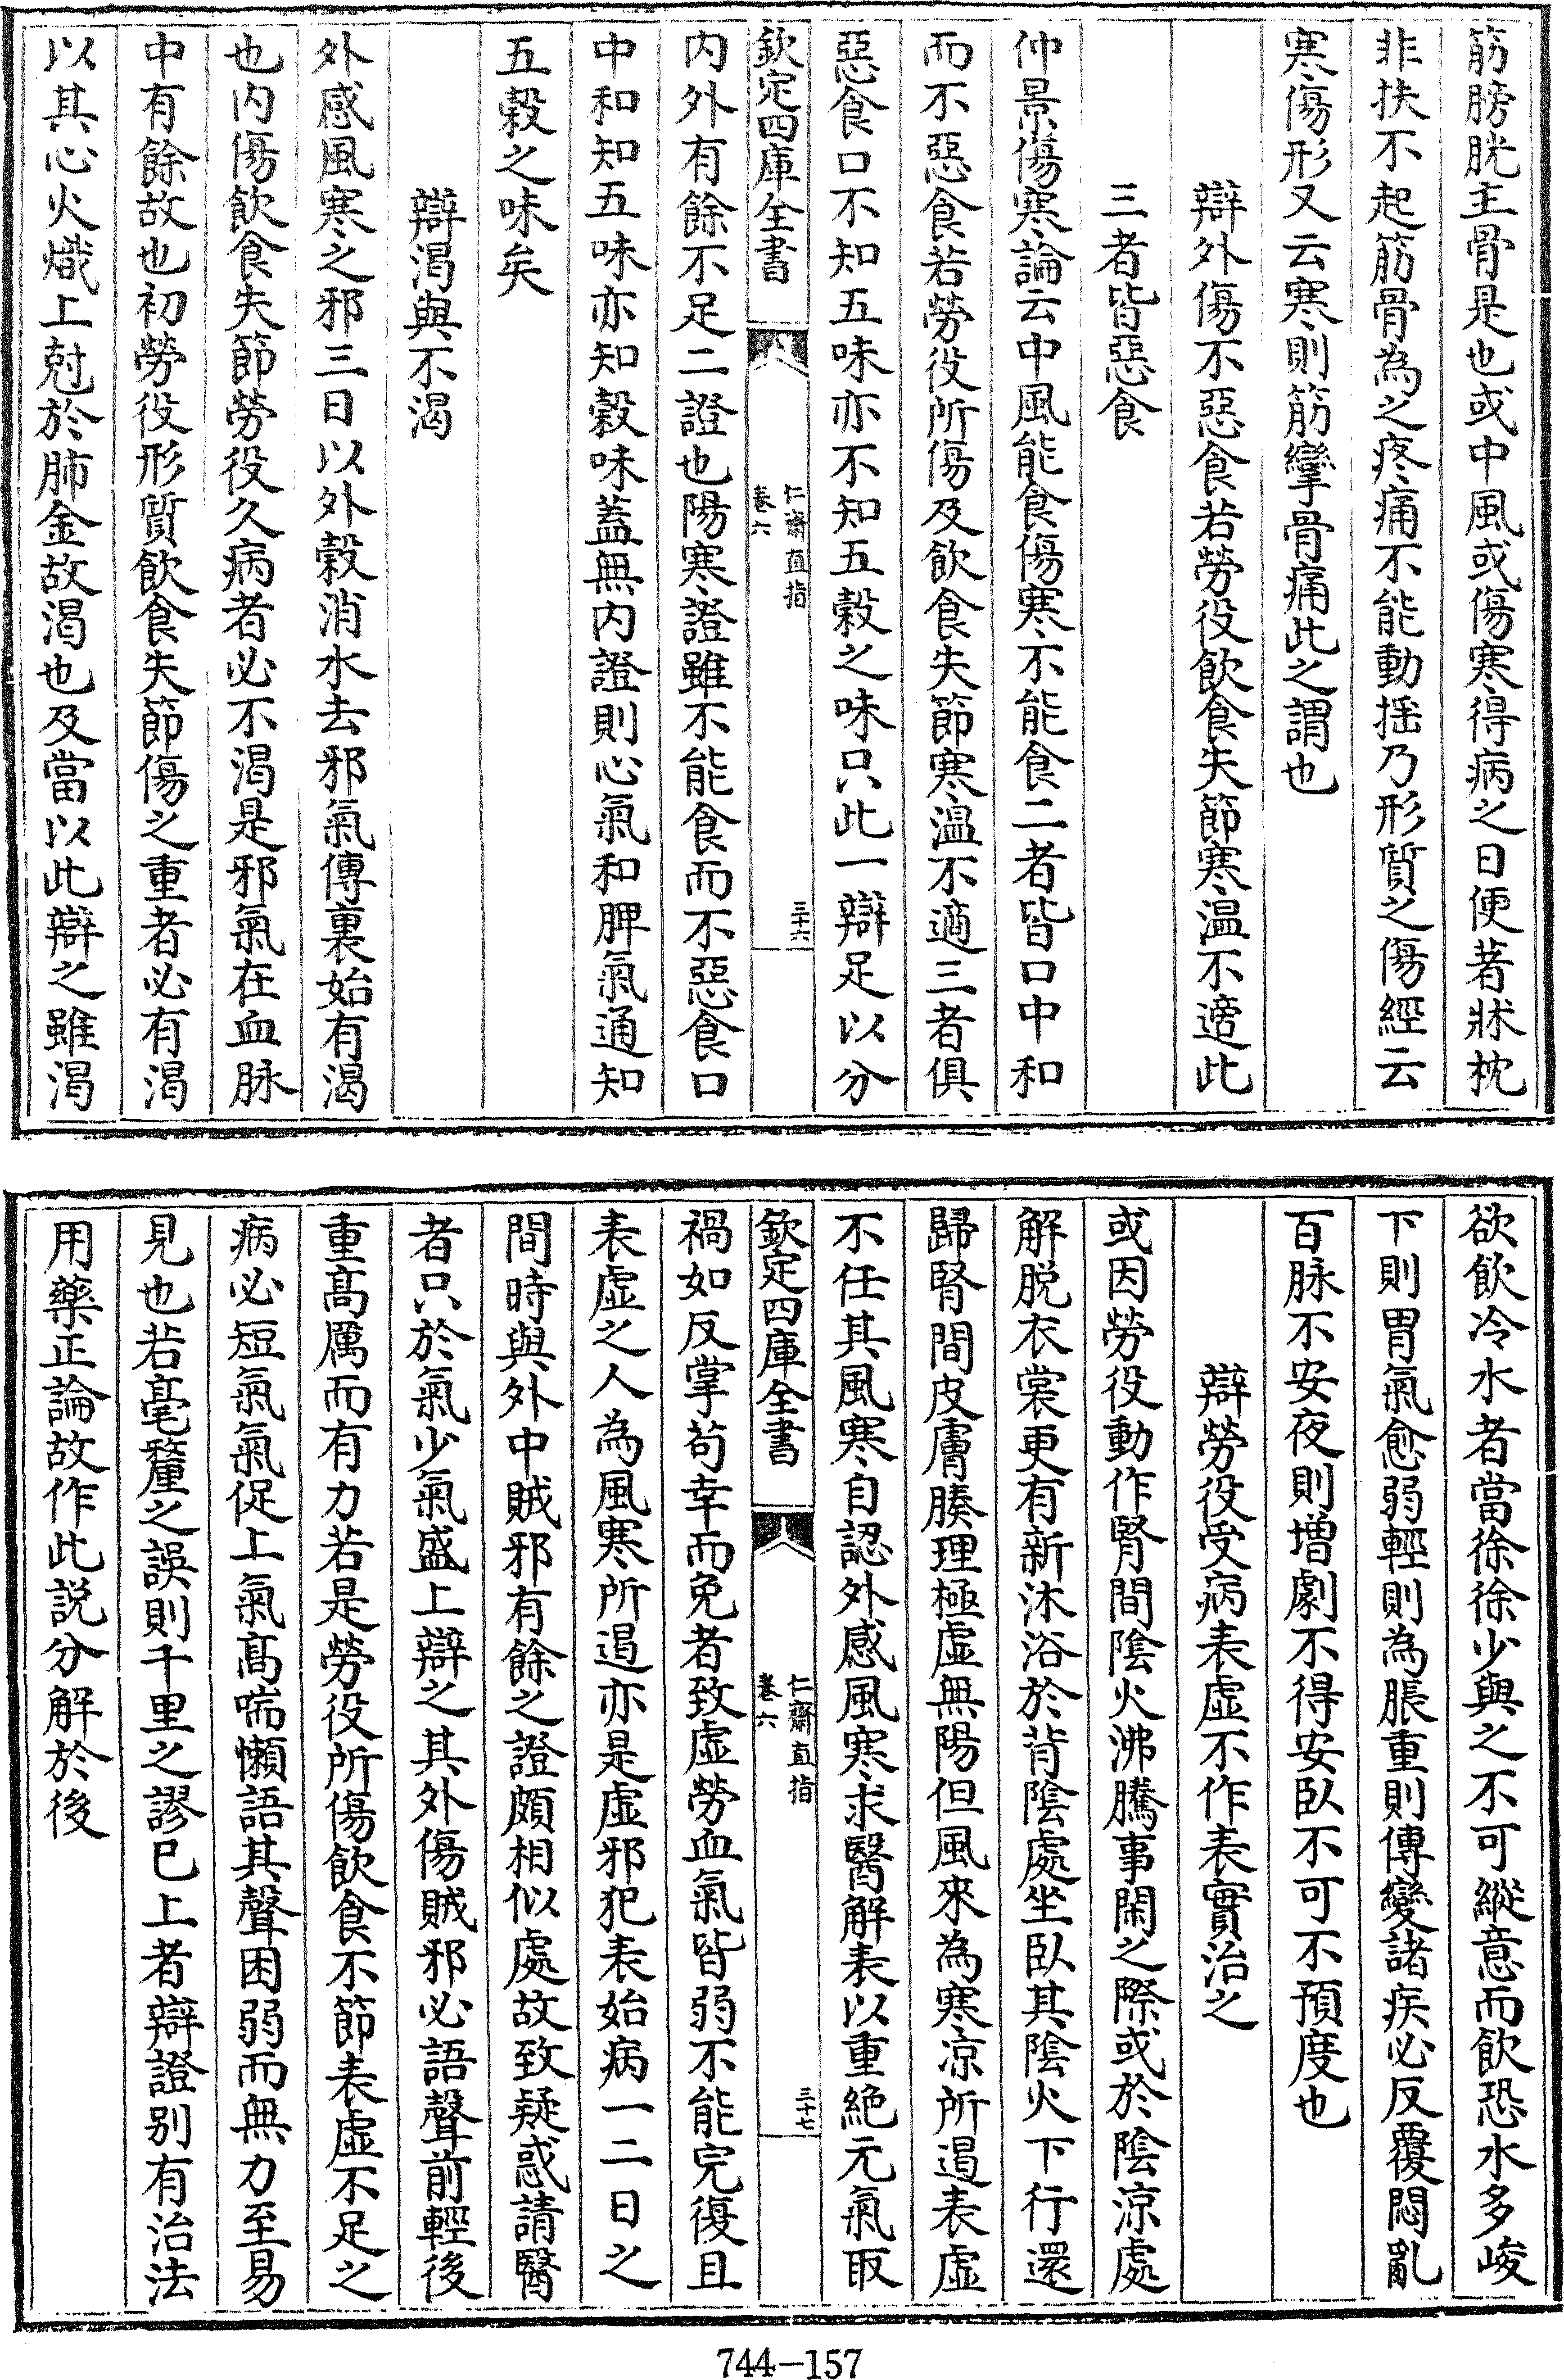 筋膀胱主骨是也或中風或傷寒得病之日便著牀枕
非扶不起筋骨為之疼痛不能動揺乃形質之傷經云
寒傷形又云寒則筋攣骨痛此之謂也
辯外傷不惡食若勞役飲食失節寒温不適此
三者皆惡食
仲景傷寒論云中風能食傷寒不能食二者皆口中和
而不惡食若勞役所傷及飲食失節寒温不適三者俱
惡食口不知五味亦不知五穀之味只此一辯足以分
欽定四庫全書
仁齋直指
卷六
三十六
内外有餘不足二證也陽寒證雖不能食而不惡食口
中和知五味亦知穀味蓋無内證則心氣和脾氣通知
五穀之味矣
辯渴與不渴
外感風寒之邪三日以外穀消水去邪氣傳裏始有渴
也内傷飲食失節勞役久病者必不渴是邪氣在血脉
中有餘故也初勞役形質飲食失節傷之重者必有渴
以其心火熾上尅於肺金故渴也及當以此辯之雖渴
欲飲冷水者當徐徐少與之不可縱意而飲恐水多峻
下則胃氣愈弱輕則為脹重則傳變諸疾必反覆悶亂
百脉不安夜則增劇不得安卧不可不預度也
辯勞役受病表虛不作表實治之
或因勞役動作腎間陰火沸騰事閑之際或於陰凉處
解脱衣裳更有新沐浴於背陰處坐卧其陰火下行還
歸腎間皮膚腠理極虛無陽但風來為寒凉所遏表虛
不任其風寒自認外感風寒求醫解表以重絶元氣取
欽定四庫全書
仁齋直指
卷六
三十七
禍如反掌苟幸而免者致虛勞血氣皆弱不能完復且
表虛之人為風寒所遏亦是虛邪犯表始病一二日之
間時與外中賊邪有餘之證頗相似處故致疑惑請醫
者只於氣少氣盛上辯之其外傷賊邪必語聲前輕後
重高厲而有力若是勞役所傷飲食不節表虛不足之
病必短氣氣促上氣高喘懶語其聲困弱而無力至易
見也若毫釐之誤則千里之謬已上者辯證别有治法
用藥正論故作此説分解於後
744-157